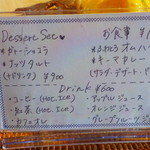 Dessert Set♥
・ガトーショコラ
・ナッツタルト
(+ドリンク) ¥900
お食事 ¥1
・ふわとろオムハ
・キーマカレー
(サラダ・デザート・
Drink ¥600
・コーヒー(HOT.ICE)
・紅茶(HOT.ICE)
・カフェオレ
・アップルジュース
・オレンジジュース
・グレープフルーツジ